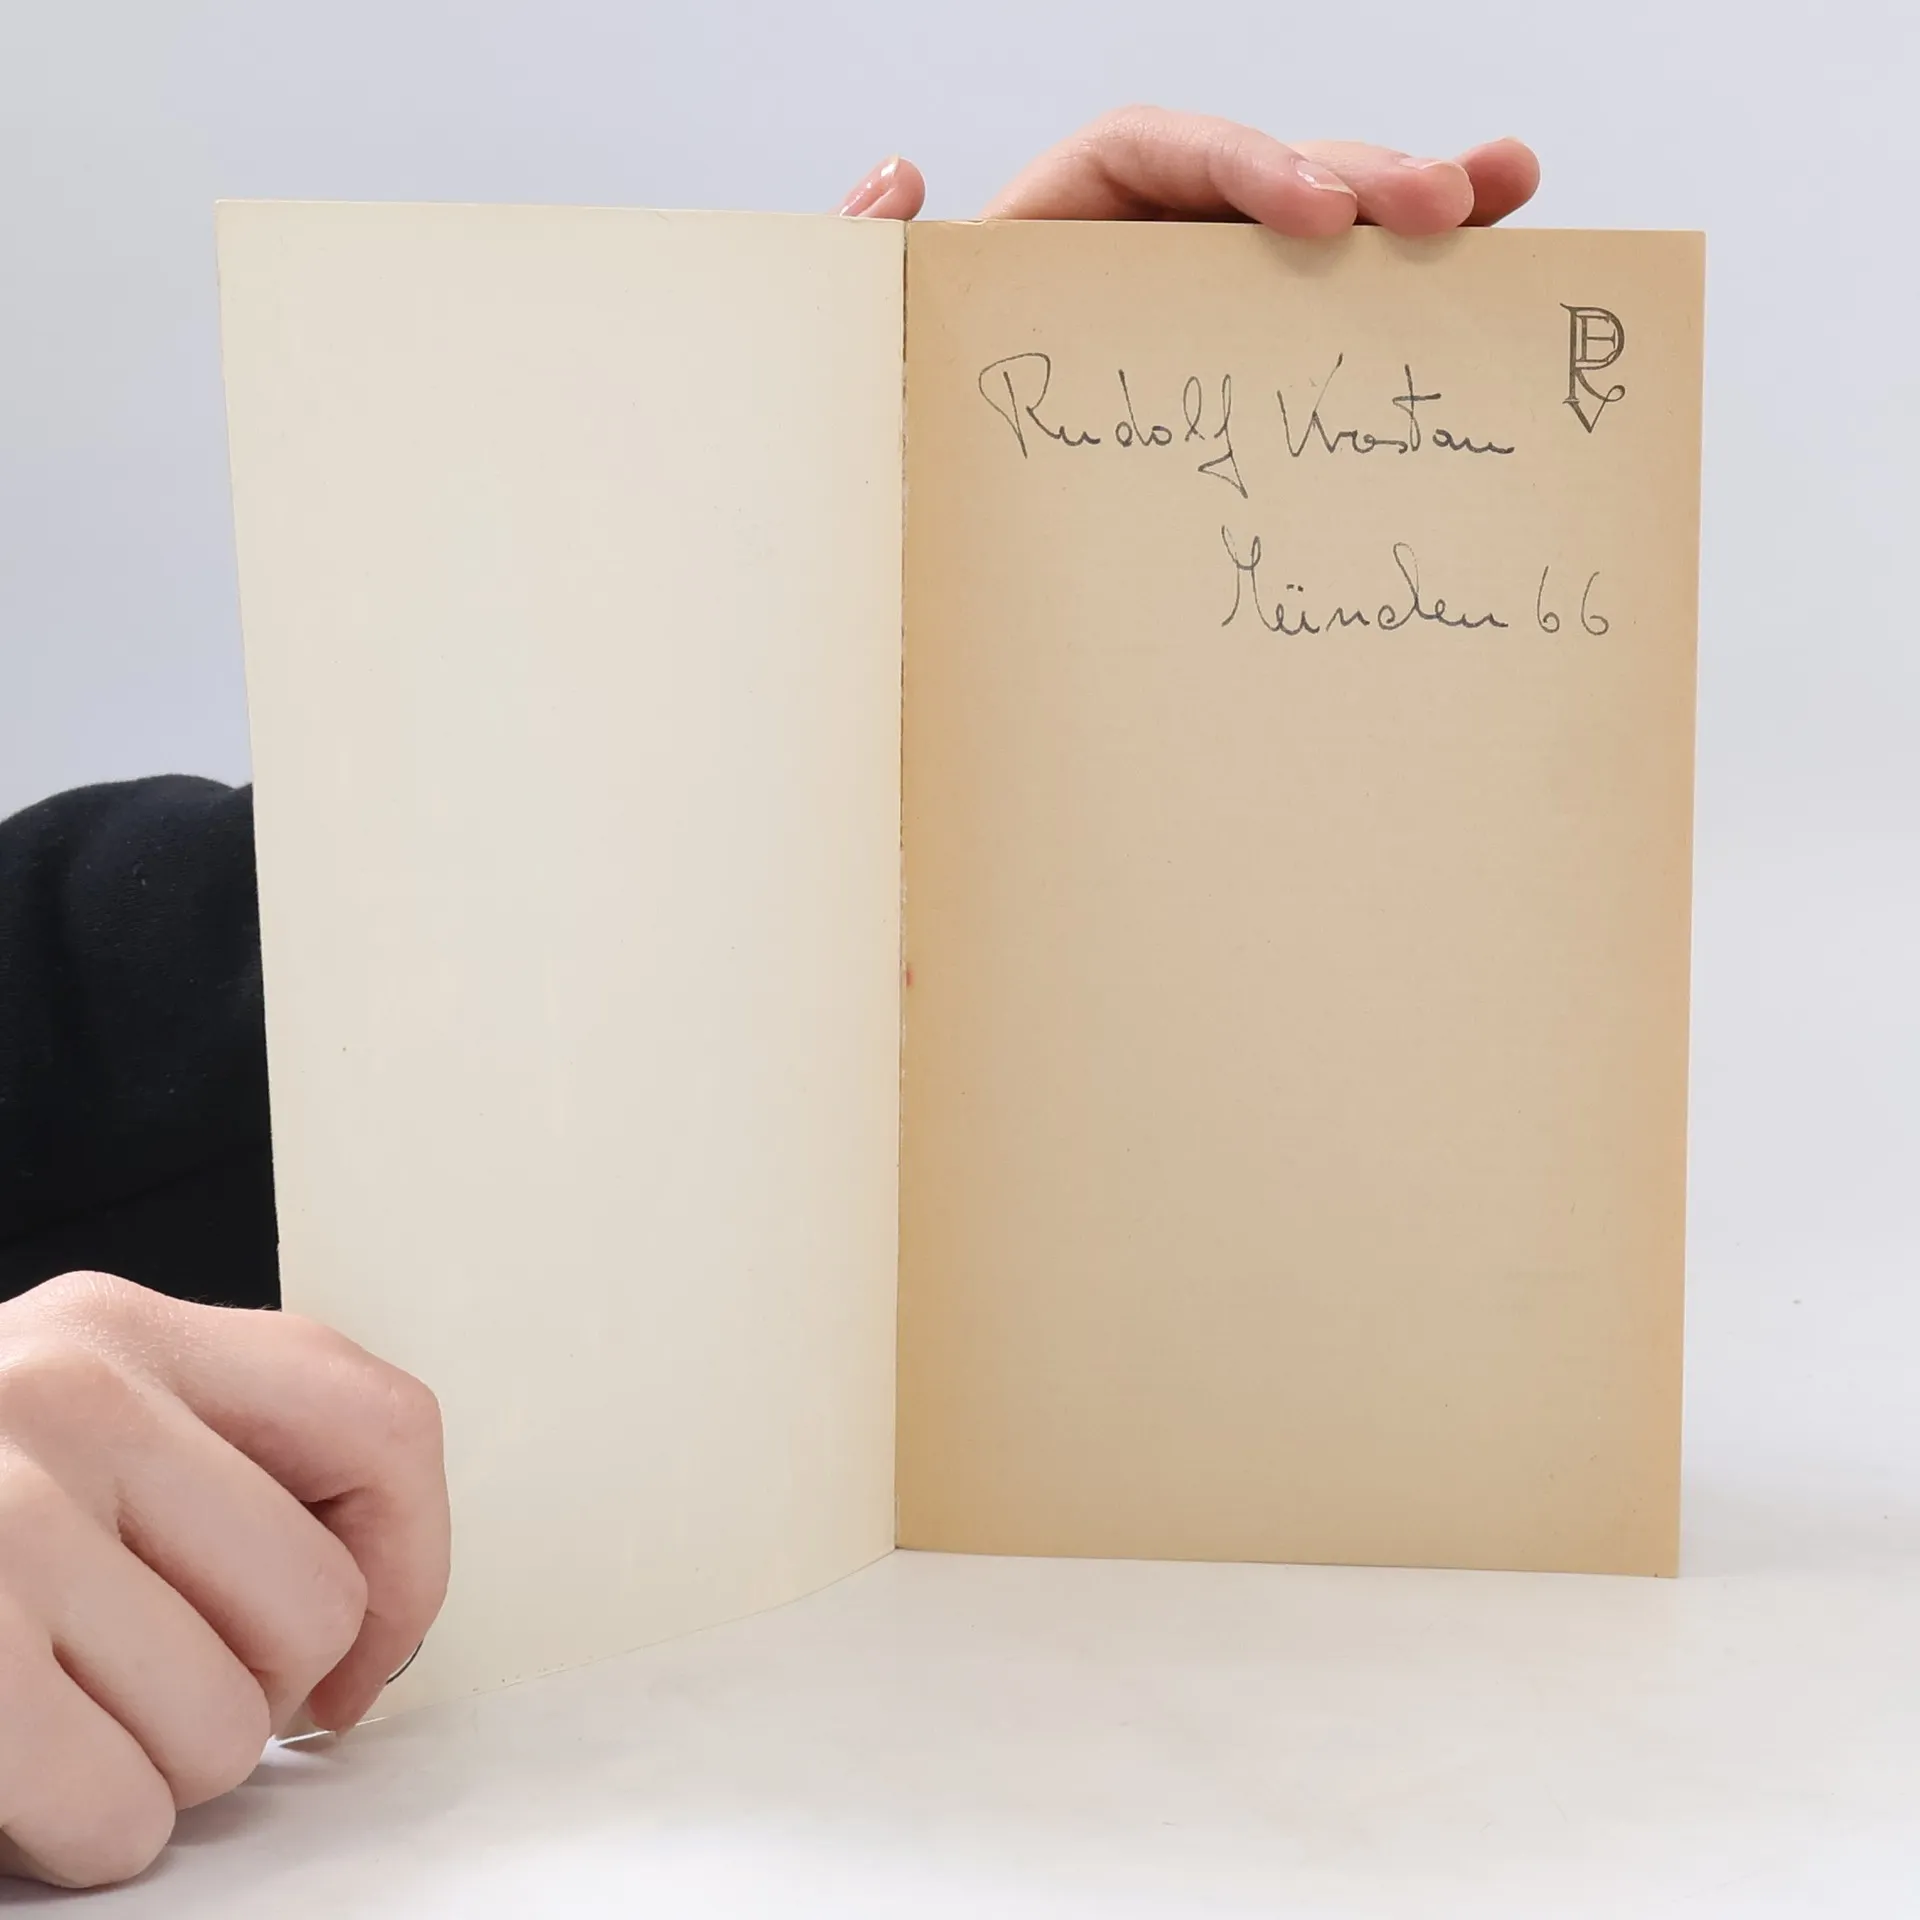 Rudolf Krostau
München 66